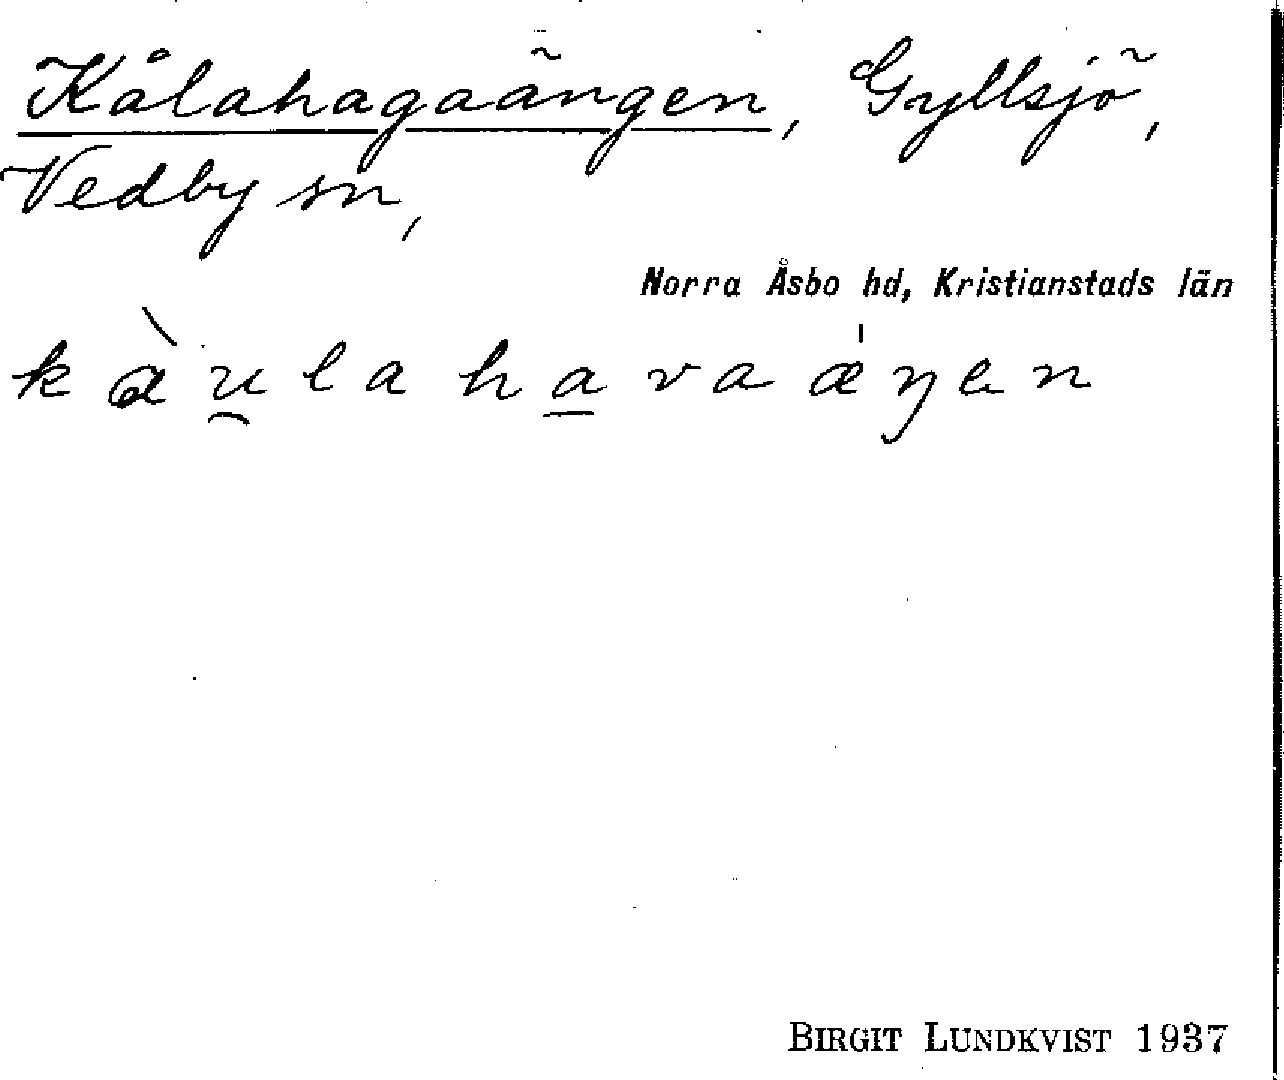 Kålahagaängen, Gyllsjö,
Vedby sn,
Norra Åsbo hd, Kristianstads län
kàu̯laha̱vaæ̍ŋen
BIRGIT LUNDKVIST 1937